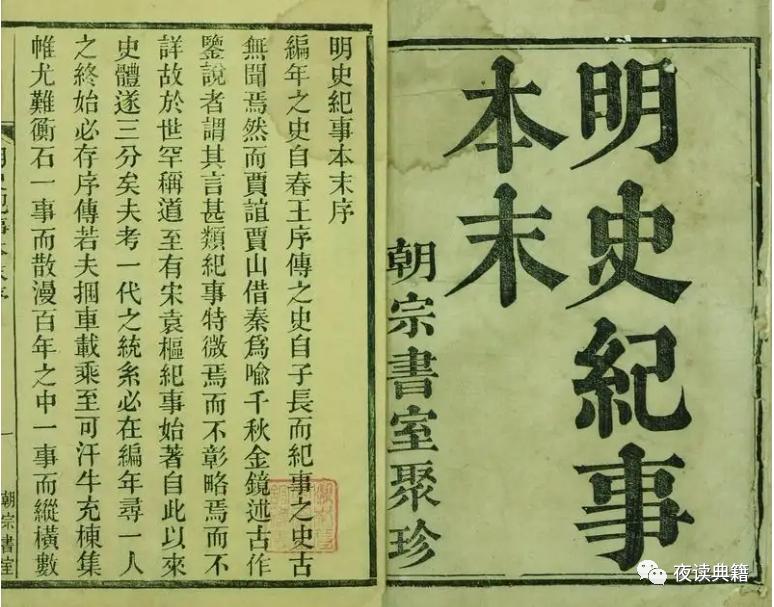 明史紀事
本末
朝宗書室聚珍
明史紀事本末序
編年之史自春王序傳之史自子長而紀事之史古
無聞焉然而賈誼賈山借秦爲喻千秋金鏡述古作
鑒說者謂其言甚類紀事特微焉而不彰略焉而不
詳故於世罕稱道至有宋袁樞紀事始著自此以來
史體遂三分矣夫考一代之統系必在編年尋一人
之終始必存序傳若夫捆車載乘至可汗牛充棟集
帷尤難衡石一事而散漫百年之中一事而縱橫數
一
朝宗書室
夜读典籍